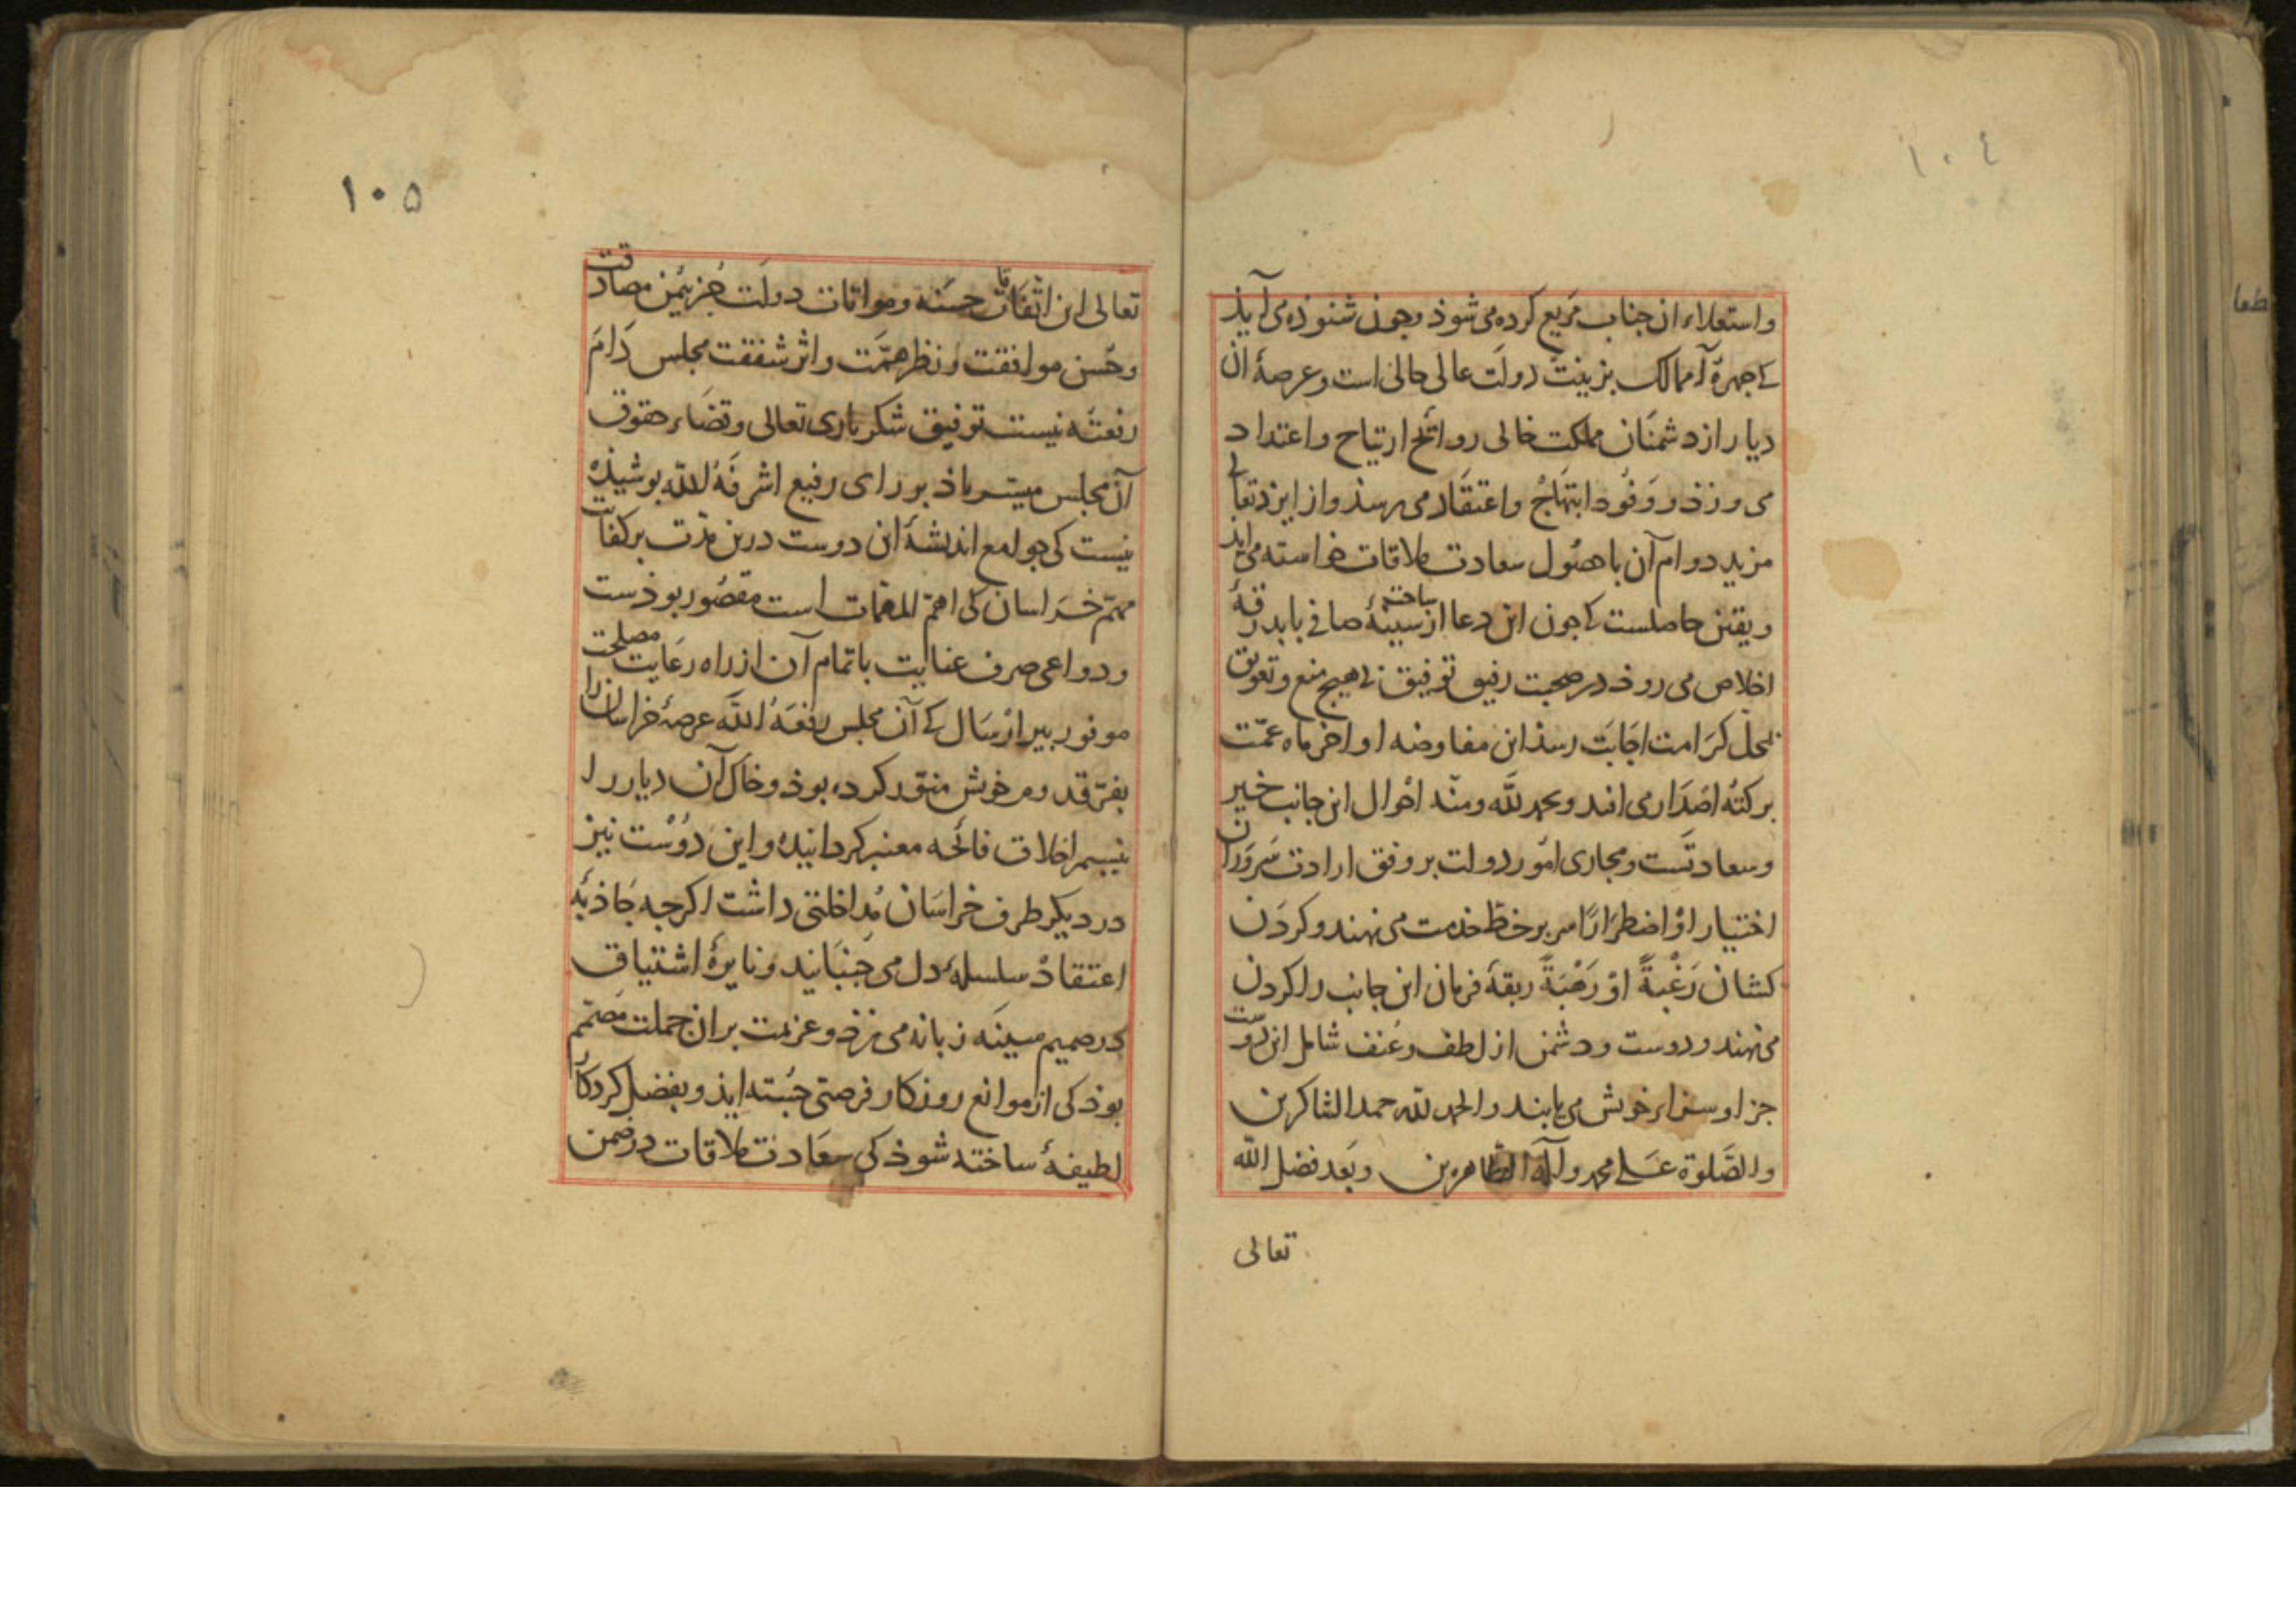 ١٠٤
واستعلاء ان جناب مریع کرده می شوذ وجون شنوذه می آیذ
کی جهرهٔ آ ممالک بزینت دولت عالی حالی است و عرصهٔ ان
دیار از دشمنان مملکت خالی روائح ارتیاح و اعتداد
می وزذ و وفود ابتهاج و اعتقاد می رسذ و از ایزد تعالی
مزید دوام آن با حصول سعادت ملاقات خواسته می ایذ
و یقین حاصلست کی جون این دعا از ساحت سینهٔ صافی با بدرقهٔ
اخلاص می روذ در صحبت رفیق توفیق بی هیج منع و تعویق
بمحل کرامت اجابت رسذ این مفاوضه اواخر ماه عمّت
برکته اصدار می افتد و بحمد لله و منّه احوال این جانب خیر
و سعادتست و مجاری امور دولت بر وفق ارادت سروران
اختیارا او اضطرارا سر بر خط خدمت می نهند و کردن
کشان رغبةً او رهبةً ربقهٔ فرمان این جانب را کردن
می نهند و دوست و دشمن از لطف و عنف شامل این دوست
جزا و سزاء خویش می یابند و الحمد لله حمد الشاکرین
والصّلوة علی محمد وآله الطاهرین وبعد فضل الله
تعالی
١٠٥
تعالی این اتفاقات حسنه و مواتات دولت جز بیمن مصادقت
و حسن موافقت و نظر همّت و اثر شفقت مجلس دام
رفعته نیست توفیق شکر باری تعالی و قضاء حقوق
آن مجلس میسّر باذ بر رای رفیع اشرفه الله بوشیذه
نیست کی جوامع اندیشهٔ این دوست درین مدّت بر کفایت
مهمّ خراسان کی اهمّ المهمّات است مقصور بوذست
و دواعی صرف عنایت باتمام آن از راه رعایت مصلحت
موفور بیرار سال کی آن مجلس رفعه الله عرصهٔ خراسان را
بفرّ قدوم خویش منوّر کرده بوذ و خاک آن دیار را
بنسیم اخلاق فائحه معنبر کردانیده و این دوست نیز
در دیکر طرف خراسان مداخلتی داشت اکرجه جاذبهٔ
اعتقاد سلسلهٔ دل می جنبانید و نایرهٔ اشتیاق
در صمیم سینه زبانه می زذ و عزیمت بر ان جملت مصمّم
بوذ کی از موانع روزکار فرصتی جسته ایذ و بفضل کردکار
لطیفهٔ ساخته شوذ کی سعادت ملاقات در ضمن